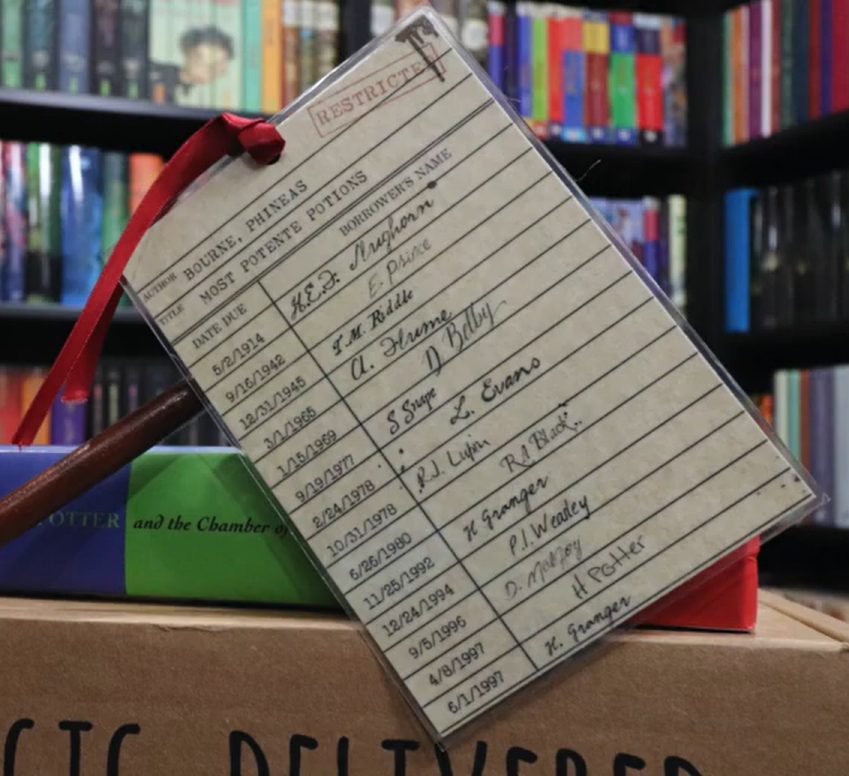 RESTRICTED
AUTHOR BOURNE, PHINEAS
TITLE MOST POTENTE POTIONS
DATE DUE BORROWER'S NAME
5/2/1914 H.E.F. Slughorn
9/16/1942 E. Prince
12/31/1945 T.M. Riddle
3/1/1965 A. Flume
1/15/1969 D Belby
9/19/1977 S Snape
2/24/1978 L. Evans
10/31/1978 R.J. Lupin
6/26/1980 R.A Black
11/25/1992 H Granger
12/24/1994 P.I. Weasley
9/5/1996 D. Malfoy
4/8/1997 H Potter
6/1/1997 H. Granger
POTTER and the Chamber of
DELIVERED